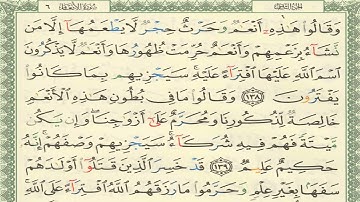 سورة الأنعام ٦ الجزء الثامن
وَقَالُوا۟ هَـٰذِهِۦٓ أَنْعَـٰمٌ وَحَرْثٌ حِجْرٌ لَّا يَطْعَمُهَآ إِلَّا مَن
نَّشَآءُ بِزَعْمِهِمْ وَأَنْعَـٰمٌ حُرِّمَتْ ظُهُورُهَا وَأَنْعَـٰمٌ لَّا يَذْكُرُونَ
ٱسْمَ ٱللَّهِ عَلَيْهَا ٱفْتِرَآءً عَلَيْهِ سَيَجْزِيهِم بِمَا كَانُوا۟
يَفْتَرُونَ ١٣٨ وَقَالُوا۟ مَا فِى بُطُونِ هَـٰذِهِ ٱلْأَنْعَـٰمِ
خَالِصَةٌ لِّذُكُورِنَا وَمُحَرَّمٌ عَلَىٰٓ أَزْوَٰجِنَا وَإِن يَكُن
مَّيْتَةً فَهُمْ فِيهِ شُرَكَآءُ سَيَجْزِيهِمْ وَصْفَهُمْ إِنَّهُۥ
حَكِيمٌ عَلِيمٌ ١٣٩ قَدْ خَسِرَ ٱلَّذِينَ قَتَلُوٓا۟ أَوْلَـٰدَهُمْ
سَفَهًۢا بِغَيْرِ عِلْمٍ وَحَرَّمُوا۟ مَا رَزَقَهُمُ ٱللَّهُ ٱفْتِرَآءً عَلَى ٱللَّهِ